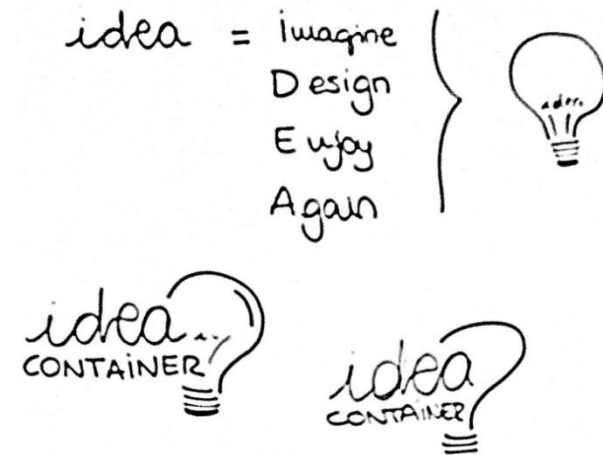 idea = imagine
Design
Enjoy
Again
idea
CONTAINER
idea
CONTAINER